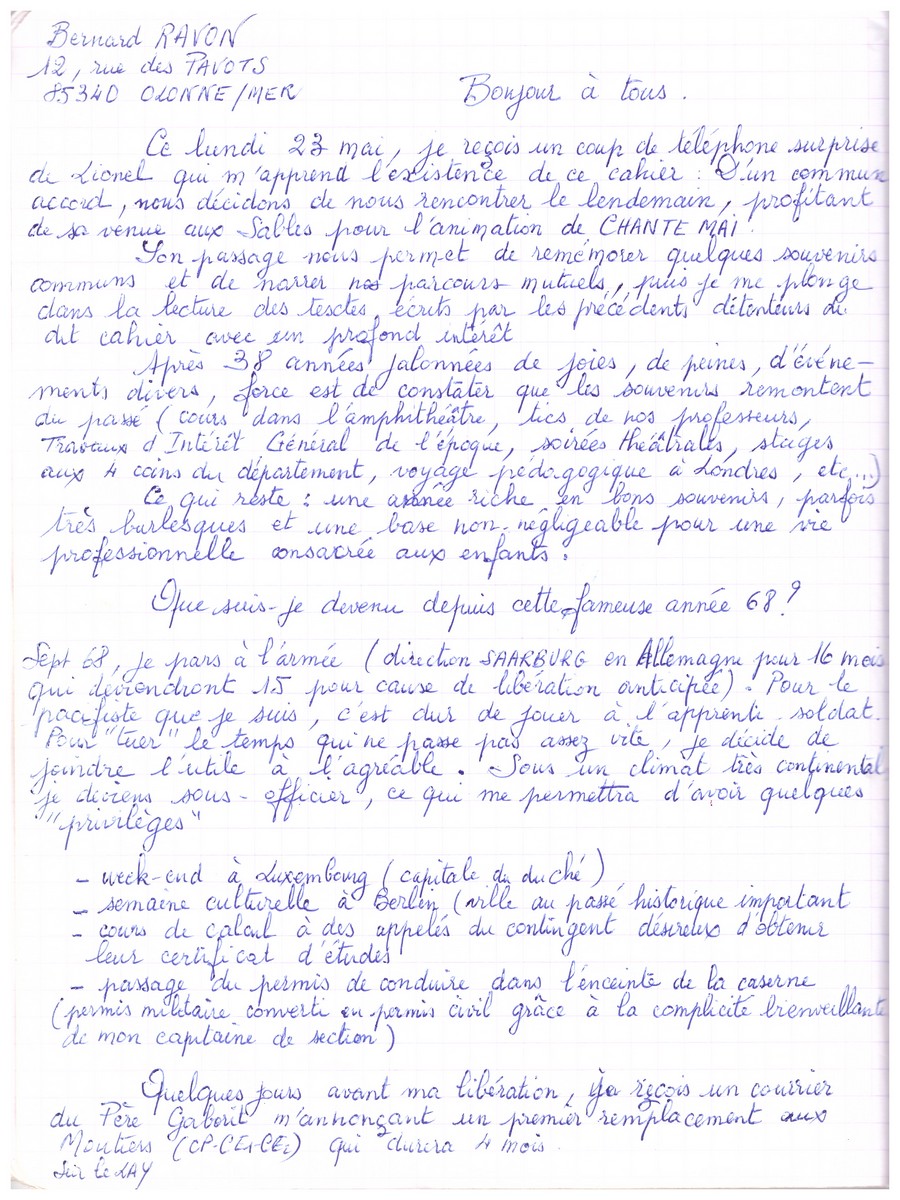 Bernard RAVON
12, rue des PAVOTS
85340 OLONNE/MER
Bonjour à tous.
Ce lundi 23 mai, je reçois un coup de téléphone surprise
de Lionel qui m'apprend l'existence de ce cahier. D'un commun
accord, nous décidons de nous rencontrer le lendemain, profitant
de sa venue aux Sables pour l'animation de CHANTE MAI.
Son passage nous permet de remémorer quelques souvenirs
communs et de narrer nos parcours mutuels, puis je me plonge
dans la lecture des textes écrits par les précédents détenteurs du
dit cahier avec un profond intérêt
Après 38 années jalonnées de joies, de peines, d'événe-
ments divers, force est de constater que les souvenirs remontent
du passé (cours dans l'amphithéâtre, tics de nos professeurs,
Travaux d'Intérêt Général de l'époque, soirées théâtrales, stages
aux 4 coins du département, voyage pédagogique à Londres, etc...)
Ce qui reste : une année riche en bons souvenirs, parfois
très burlesques et une base non-négligeable pour une vie
professionnelle consacrée aux enfants.
Que suis-je devenu depuis cette fameuse année 68?
Sept 68, je pars à l'armée (direction SAARBURG en Allemagne pour 16 mois
qui deviendront 15 pour cause de libération anticipée). Pour le
pacifiste que je suis, c'est dur de jouer à l'apprenti-soldat.
Pour "tuer" le temps qui ne passe pas assez vite, je décide de
joindre l'utile à l'agréable. Sous un climat très continental
je deviens sous-officier, ce qui me permettra d'avoir quelques
"privilèges"
- week-end à Luxembourg (capitale du duché)
- semaine culturelle à Berlin (ville au passé historique important
- cours de calcul à des appelés du contingent désireux d'obtenir
leur certificat d'études
- passage du permis de conduire dans l'enceinte de la caserne
(permis militaire converti en permis civil grâce à la complicité bienveillante
de mon capitaine de section)
Quelques jours avant ma libération, je reçois un courrier
du Père Gaborit m'annonçant un premier remplacement aux
Moutiers (CP-CE1-CE2) qui durera 4 mois.
sur le LAY